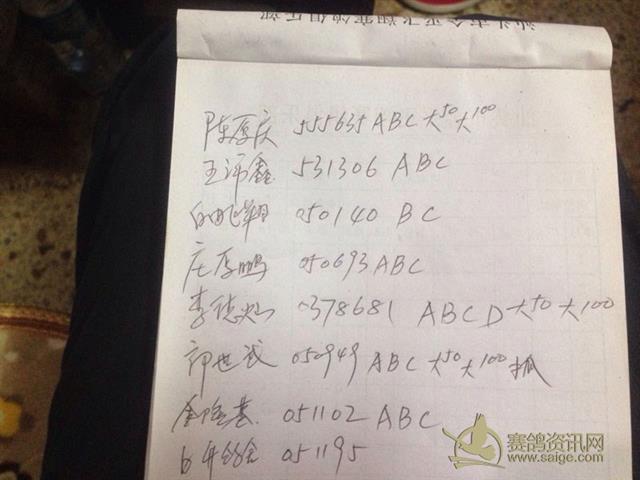 汕头市金平飞翔赛鸽俱乐部
陈厚庆 555635 ABC 大50 大100
王沛鑫 531306 ABC
白鹏翔 050140 BC
庄厚鹏 050693 ABC
李德灿 0378681 ABCD 大50 大100
050949 ABC 大50 大100
051102 ABC
051195
赛鸽资讯网
www.saige.com